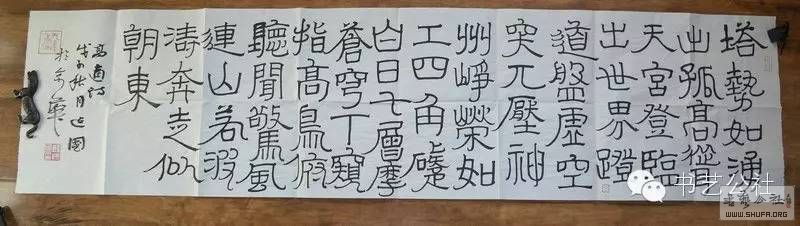 塔勢如湧
出孤高聳
天宮登臨
出世界蹬
道盤虛空
突兀壓神
州崢榮如
工四角礙
白日七層摩
蒼穹下窺
指高鳥俯
聽聞驚風
連山若波
濤奔走似
朝東
高適詩
秋月
於京華
书艺公社
WWW.SHUFA.ORG